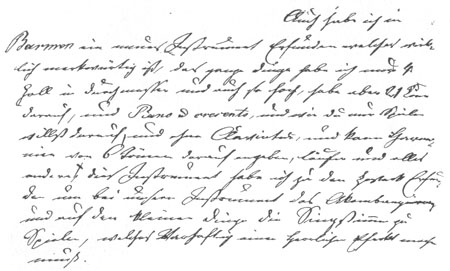 Auch habe ich in
Barmen ein neues Instrument Erfunden welches wirk-
lich merkwürdig ist, das ganze dinge habe ich nur 4
Zoll in durchmesser und auch so hoch, habe aber 21 Töne
darauf, und Piano crecento, und wie du nur Spielen
willst darauf, und ohne Claviatur, und kann Harmo-
nien von 6 Tönen darauf angeben, läufer und alles
andere, das Instrument habe ich zu den Zweck Erfun-
den um bei unsern Instrument das Akombangiren
und auf den kleinen dinge die Singstimme zu
Spielen, welches Warhaftig einen herrlichen Efeckt mach
muß.